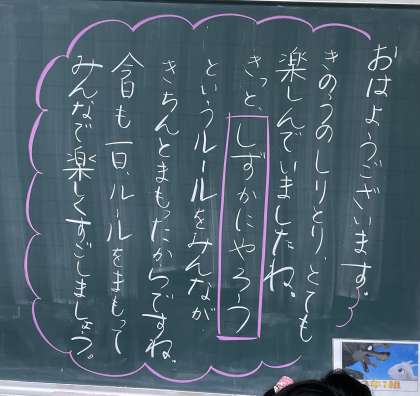 おはようございます。
きのうのしりとり、とても
楽しんでいましたね。
きっと、しずかにやろう
というルールをみんなが
きちんとまもったからですね。
今日も一日、ルールをまもって
みんなで楽しくすごしましょう。